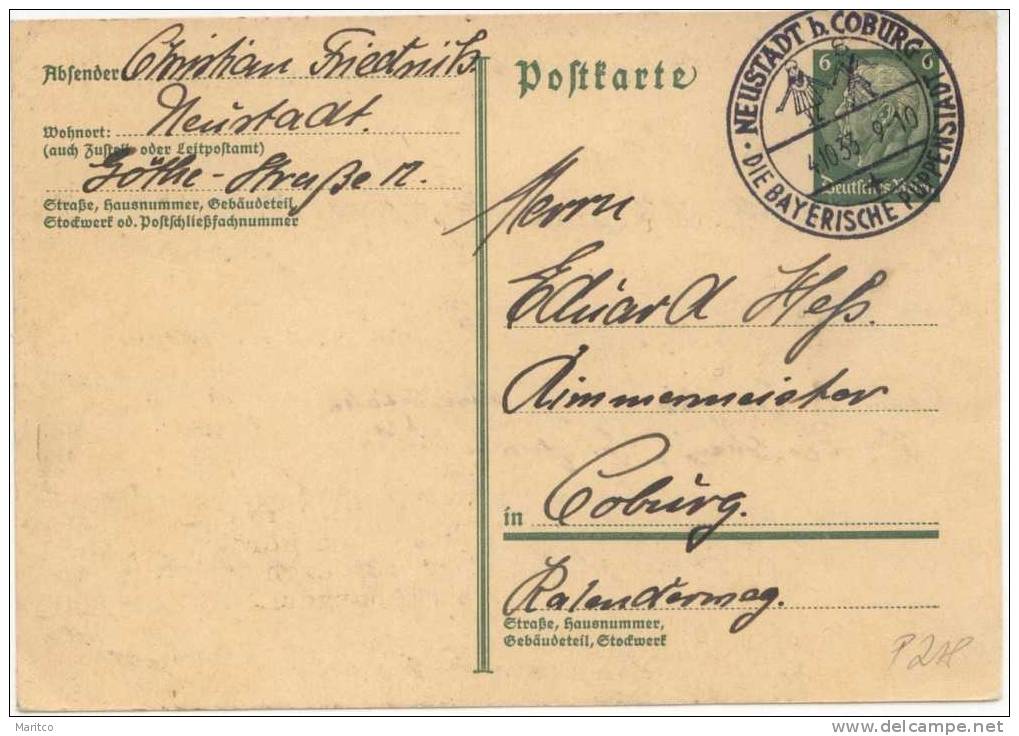 Absender Christian Friedrich.
Wohnort: Neustadt.
(auch Zustell- oder Leitpostamt)
Göthe-Straße
Straße, Hausnummer, Gebäudeteil,
Stockwerk od. Postschließfachnummer
Postkarte
NEUSTADT b. COBURG
· DIE BAYERISCHE PUPPENSTADT
4.10.33 9-10
6 6
Deutsches Reich
Herrn
Eduard Heß.
Zimmermeister
in Coburg.
Kalenderweg.
Straße, Hausnummer,
Gebäudeteil, Stockwerk
Maritco
www.delcampe.net